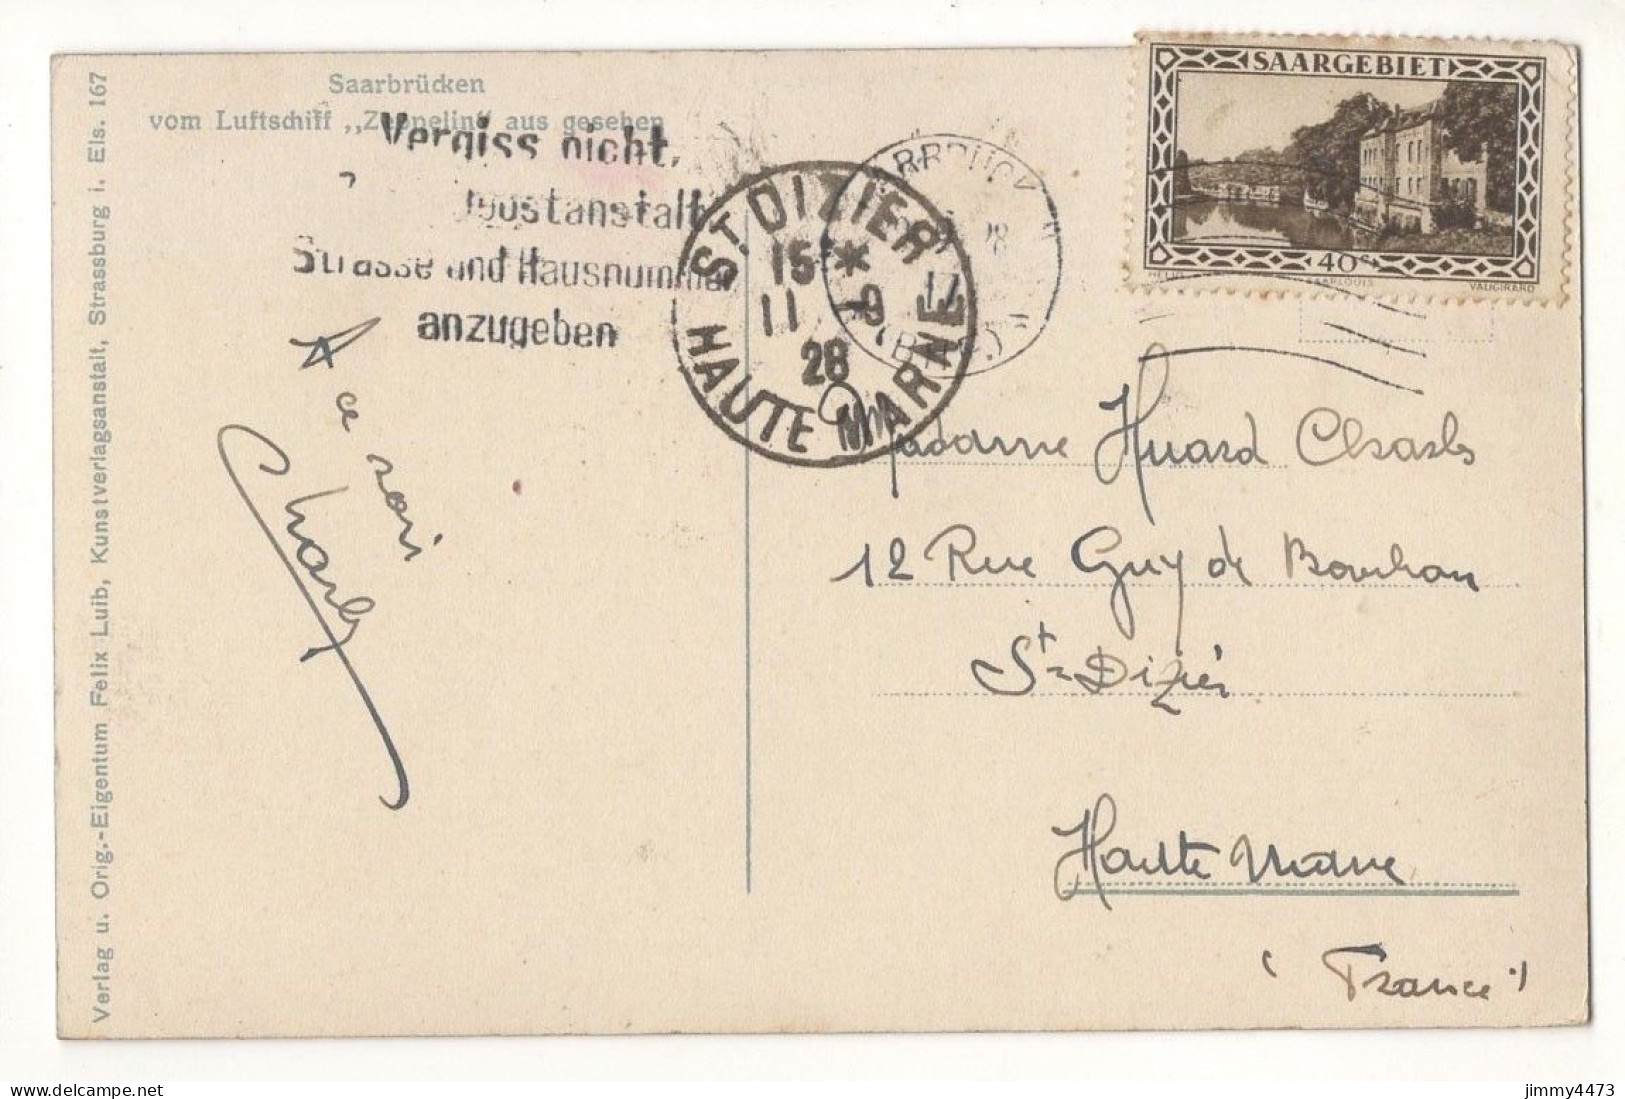 Saarbrücken
vom Luftschiff „Zeppelin“ aus gesehen
Vergiss nicht,
Strasse und Hausnummer
anzugeben
ST. DIZIER
15 *
11 9
28
HAUTE MARNE
28
17
SAARGEBIET
40 c.
SAARLOUIS
VAUGIRARD
A ce soir
Charles
Madame Huard Charles
12 Rue Guy de Bourbon
St-Dizier
Haute Marne
(France)
Verlag u. Orig.-Eigentum Felix Luib, Kunstverlagsanstalt, Strassburg i. Els. 167
jimmy4473